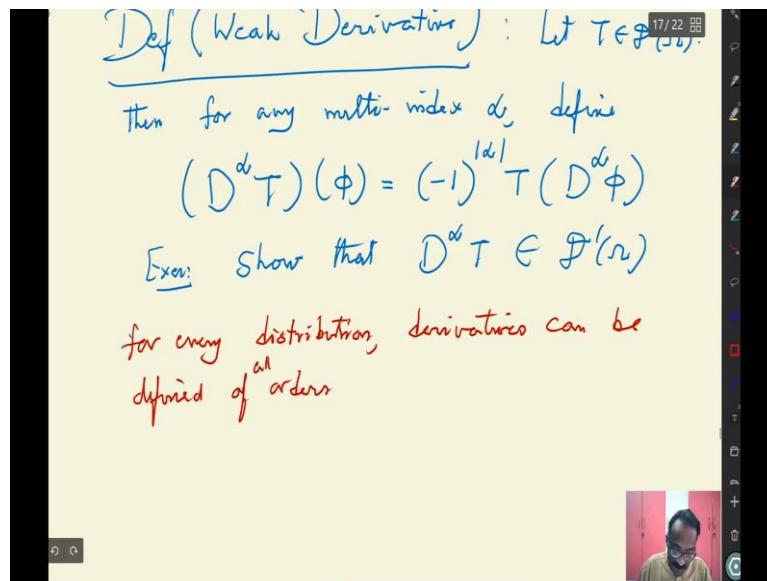 Def (Weak Derivative) : Let T ∈ D'(Ω).
17/22
Then for any multi-index α, define
(D^α T)(φ) = (-1)^|α| T(D^α φ)
Exer: Show that D^α T ∈ D'(Ω)
for every distribution, derivatives can be
defined of all orders